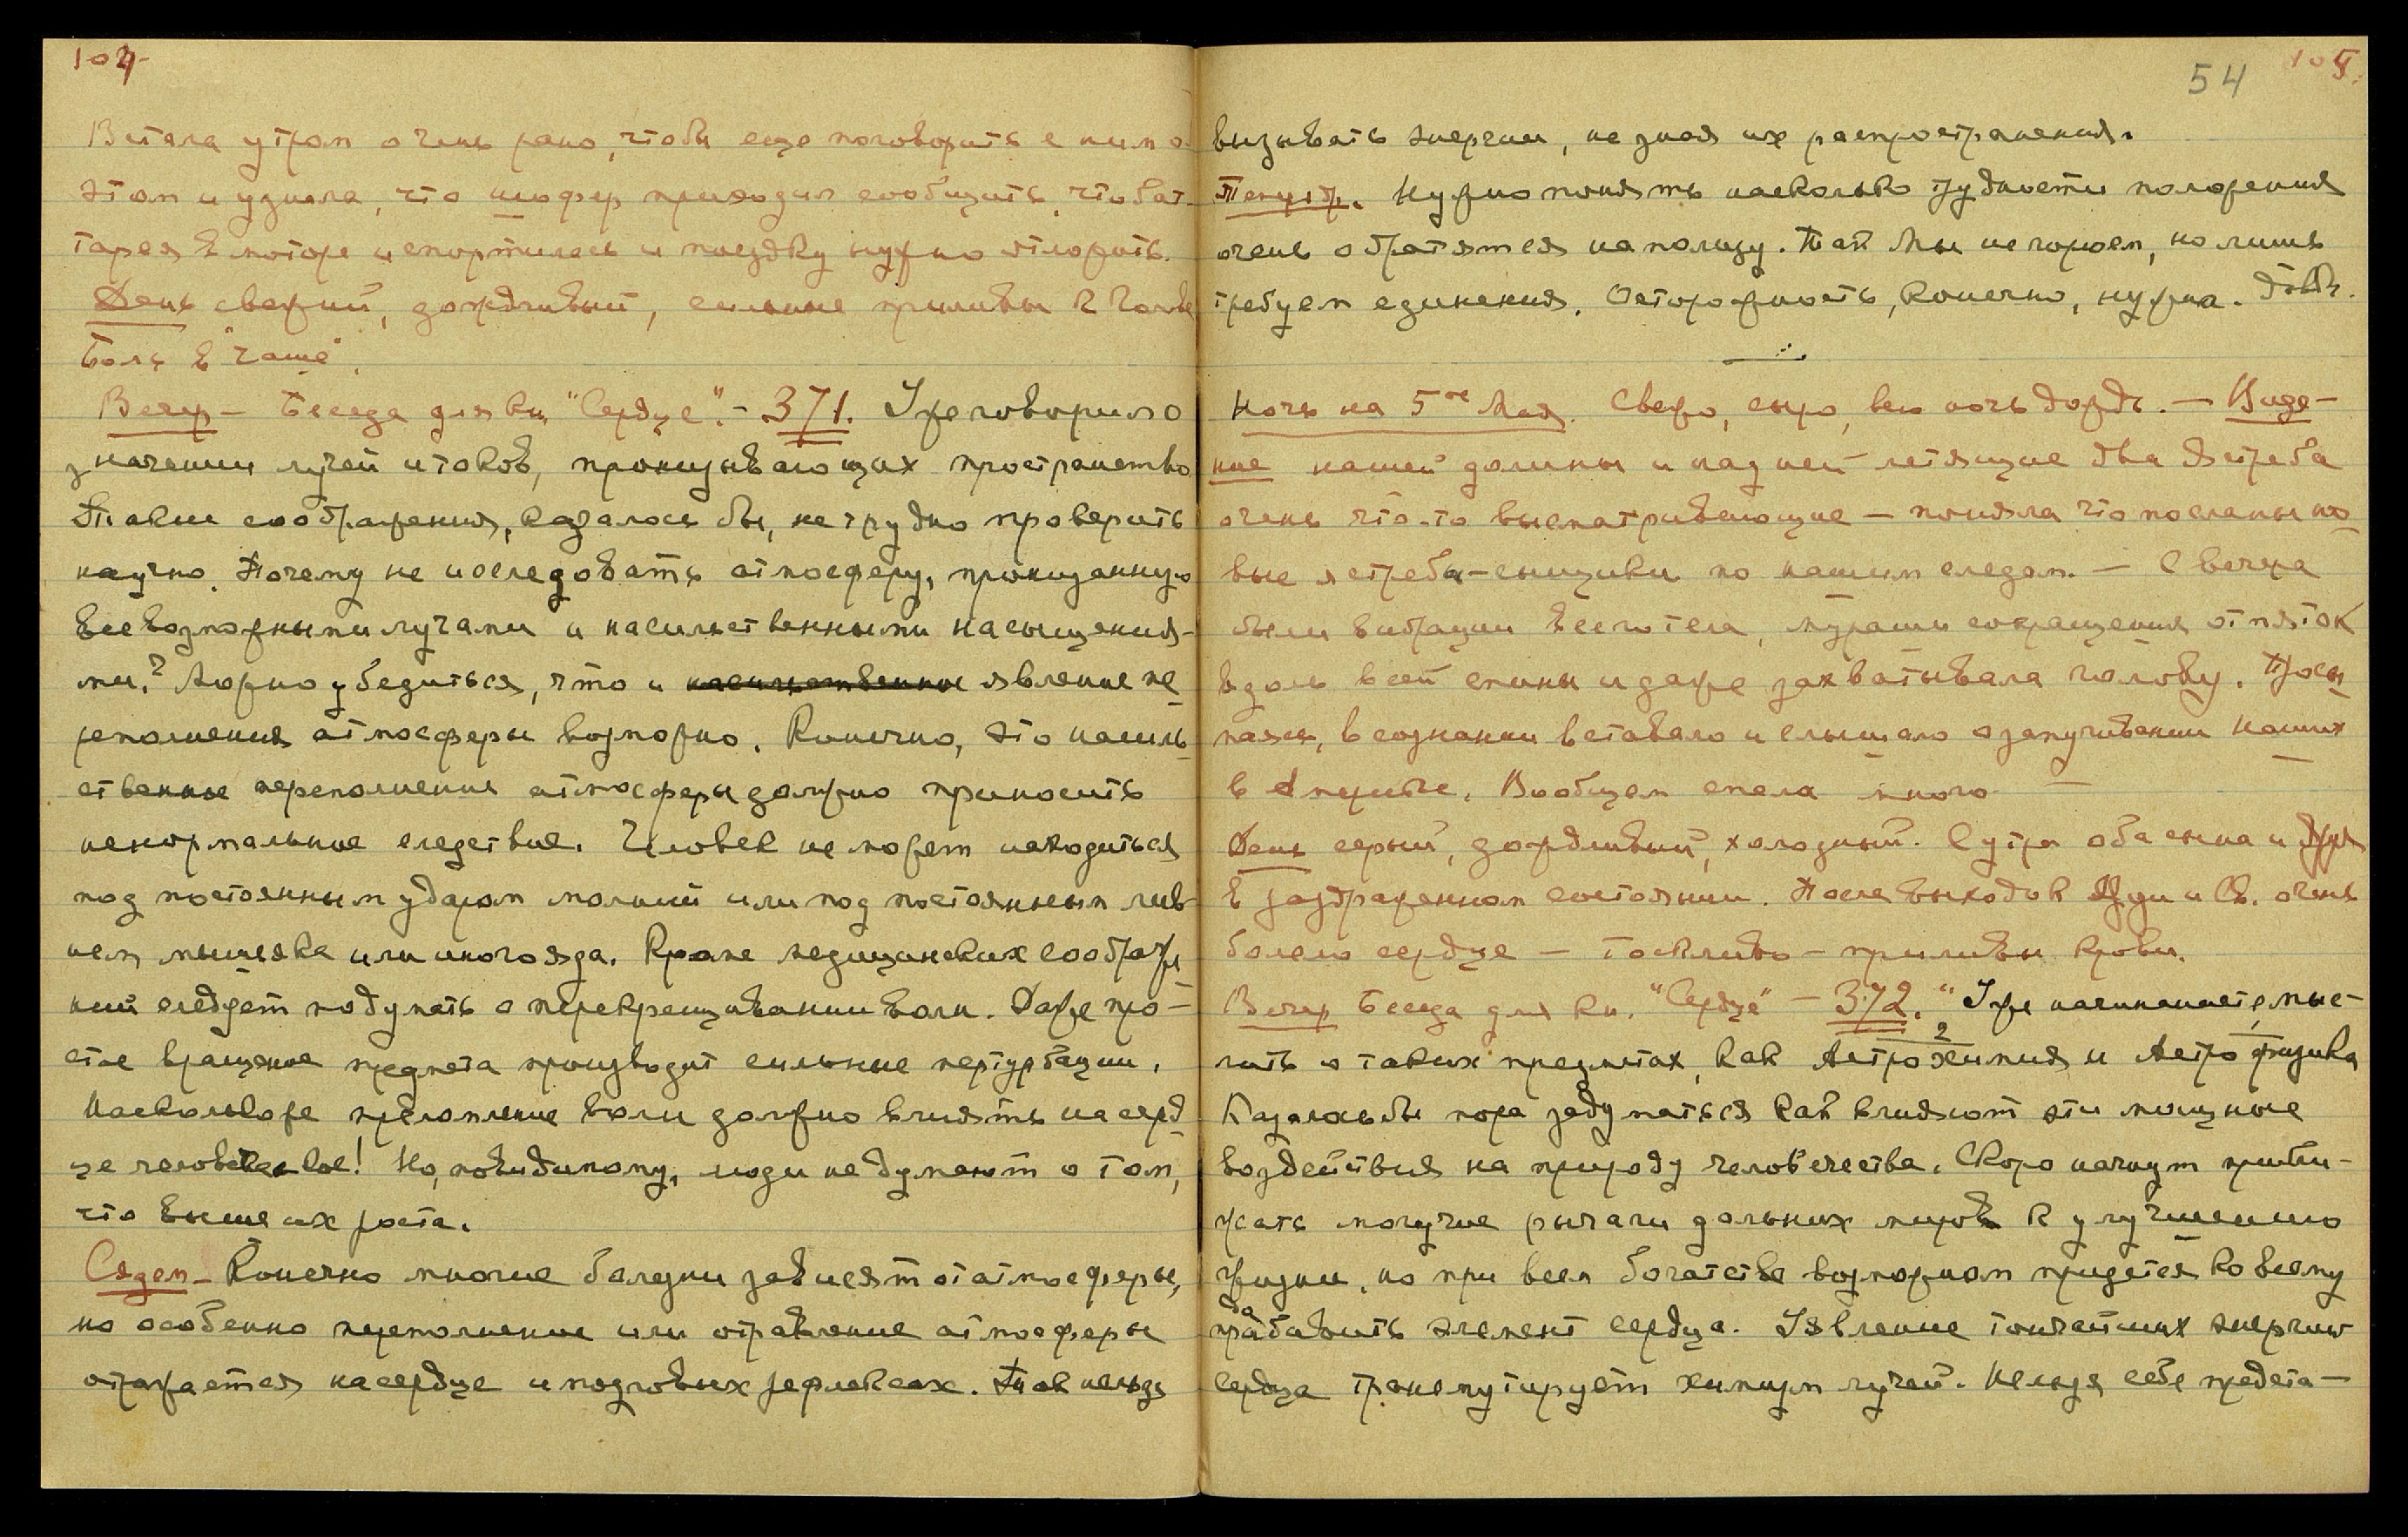 104
Встала утром очень рано, чтобы еще поговорить с ним о
этом и узнала, что шофер приходил сообщить, что бат-
тарея в моторе испортилась и поездку нужно отложить.
День свежий, дождливый, сильные приливы к голове
боль в "чаше".
Вечер – Беседа для кн. "Сердце". – 371. Уже говорил о
значении лучей и токов, пронизывающих пространство
Такие соображения, казалось бы, не трудно проверить
научно. Почему не исследовать атмосферу, пронизанную
всевозможными лучами и насильственными насыщения-
ми? Можно убедиться, что и насильственное явление пе
реполнения атмосферы возможно. Конечно, это насиль
ственное переполнение атмосферы должно приносить
ненормальные следствия. Человек не может находиться
под постоянным ударом молний или под постоянным лив-
нем мышьяка или иного яда. Кроме медицинских соображе
ний следует подумать о перекрещивании волн. Даже про-
стое вращение предмета производит сильные пертурбации.
Насколько же преломление волн должно влиять на серд
це человеческое! Но, повидимому, люди не думают о том,
что выше их роста.
Сядем – Конечно многие болезни зависят от атмосферы,
но особенно переполнение или отравление атмосферы
отражается на сердце и мозговых рефлексах. Так нельзя
54 105.
вызывать энергии, не зная их распространения.
Нужно понять насколько трудности положения
очень обратятся на пользу. Так Мы не горюем, но лишь
требуем единения. Осторожность, конечно, нужна. Довл.
Ночь на 5ое Мая. Свежо, сыро, всю ночь дождь. – Виде-
ние нашей долины и над ней летящие два ястреба
очень что-то высматривающие – поняла что посланы но
вые ястреба-сыщики по нашим следам. – С вечера
были вибрации всего тела, мураши сокращения от пяток
вдоль всей спины и даже захватывала голову. Просы
паясь, в сознании вставало и слышало о замучивании наших
в Америке. Вообщем спала много –
День серый, дождливый, холодный. С утра оба сына и
в раздраженном состоянии. После выходов и Св. очень
болело сердце – тоскливо – приливы крови.
Вечер Беседа для кн. "Сердце" – 372. "Уже начинаете мыс-
лить о таких предметах, как Астрохимия и Астрофизика
Казалось бы пора задуматься как влияют эти мощные
воздействия на природу человечества. Скоро начнут прибли-
жать могучие рычаги дальних миров к улучшению
жизни, но при всем богатстве возможном придется ко всему
прибавить элемент сердца. Явление тончайших энергий
сердца трансмутирует химизм лучей. Нельзя себе предста-